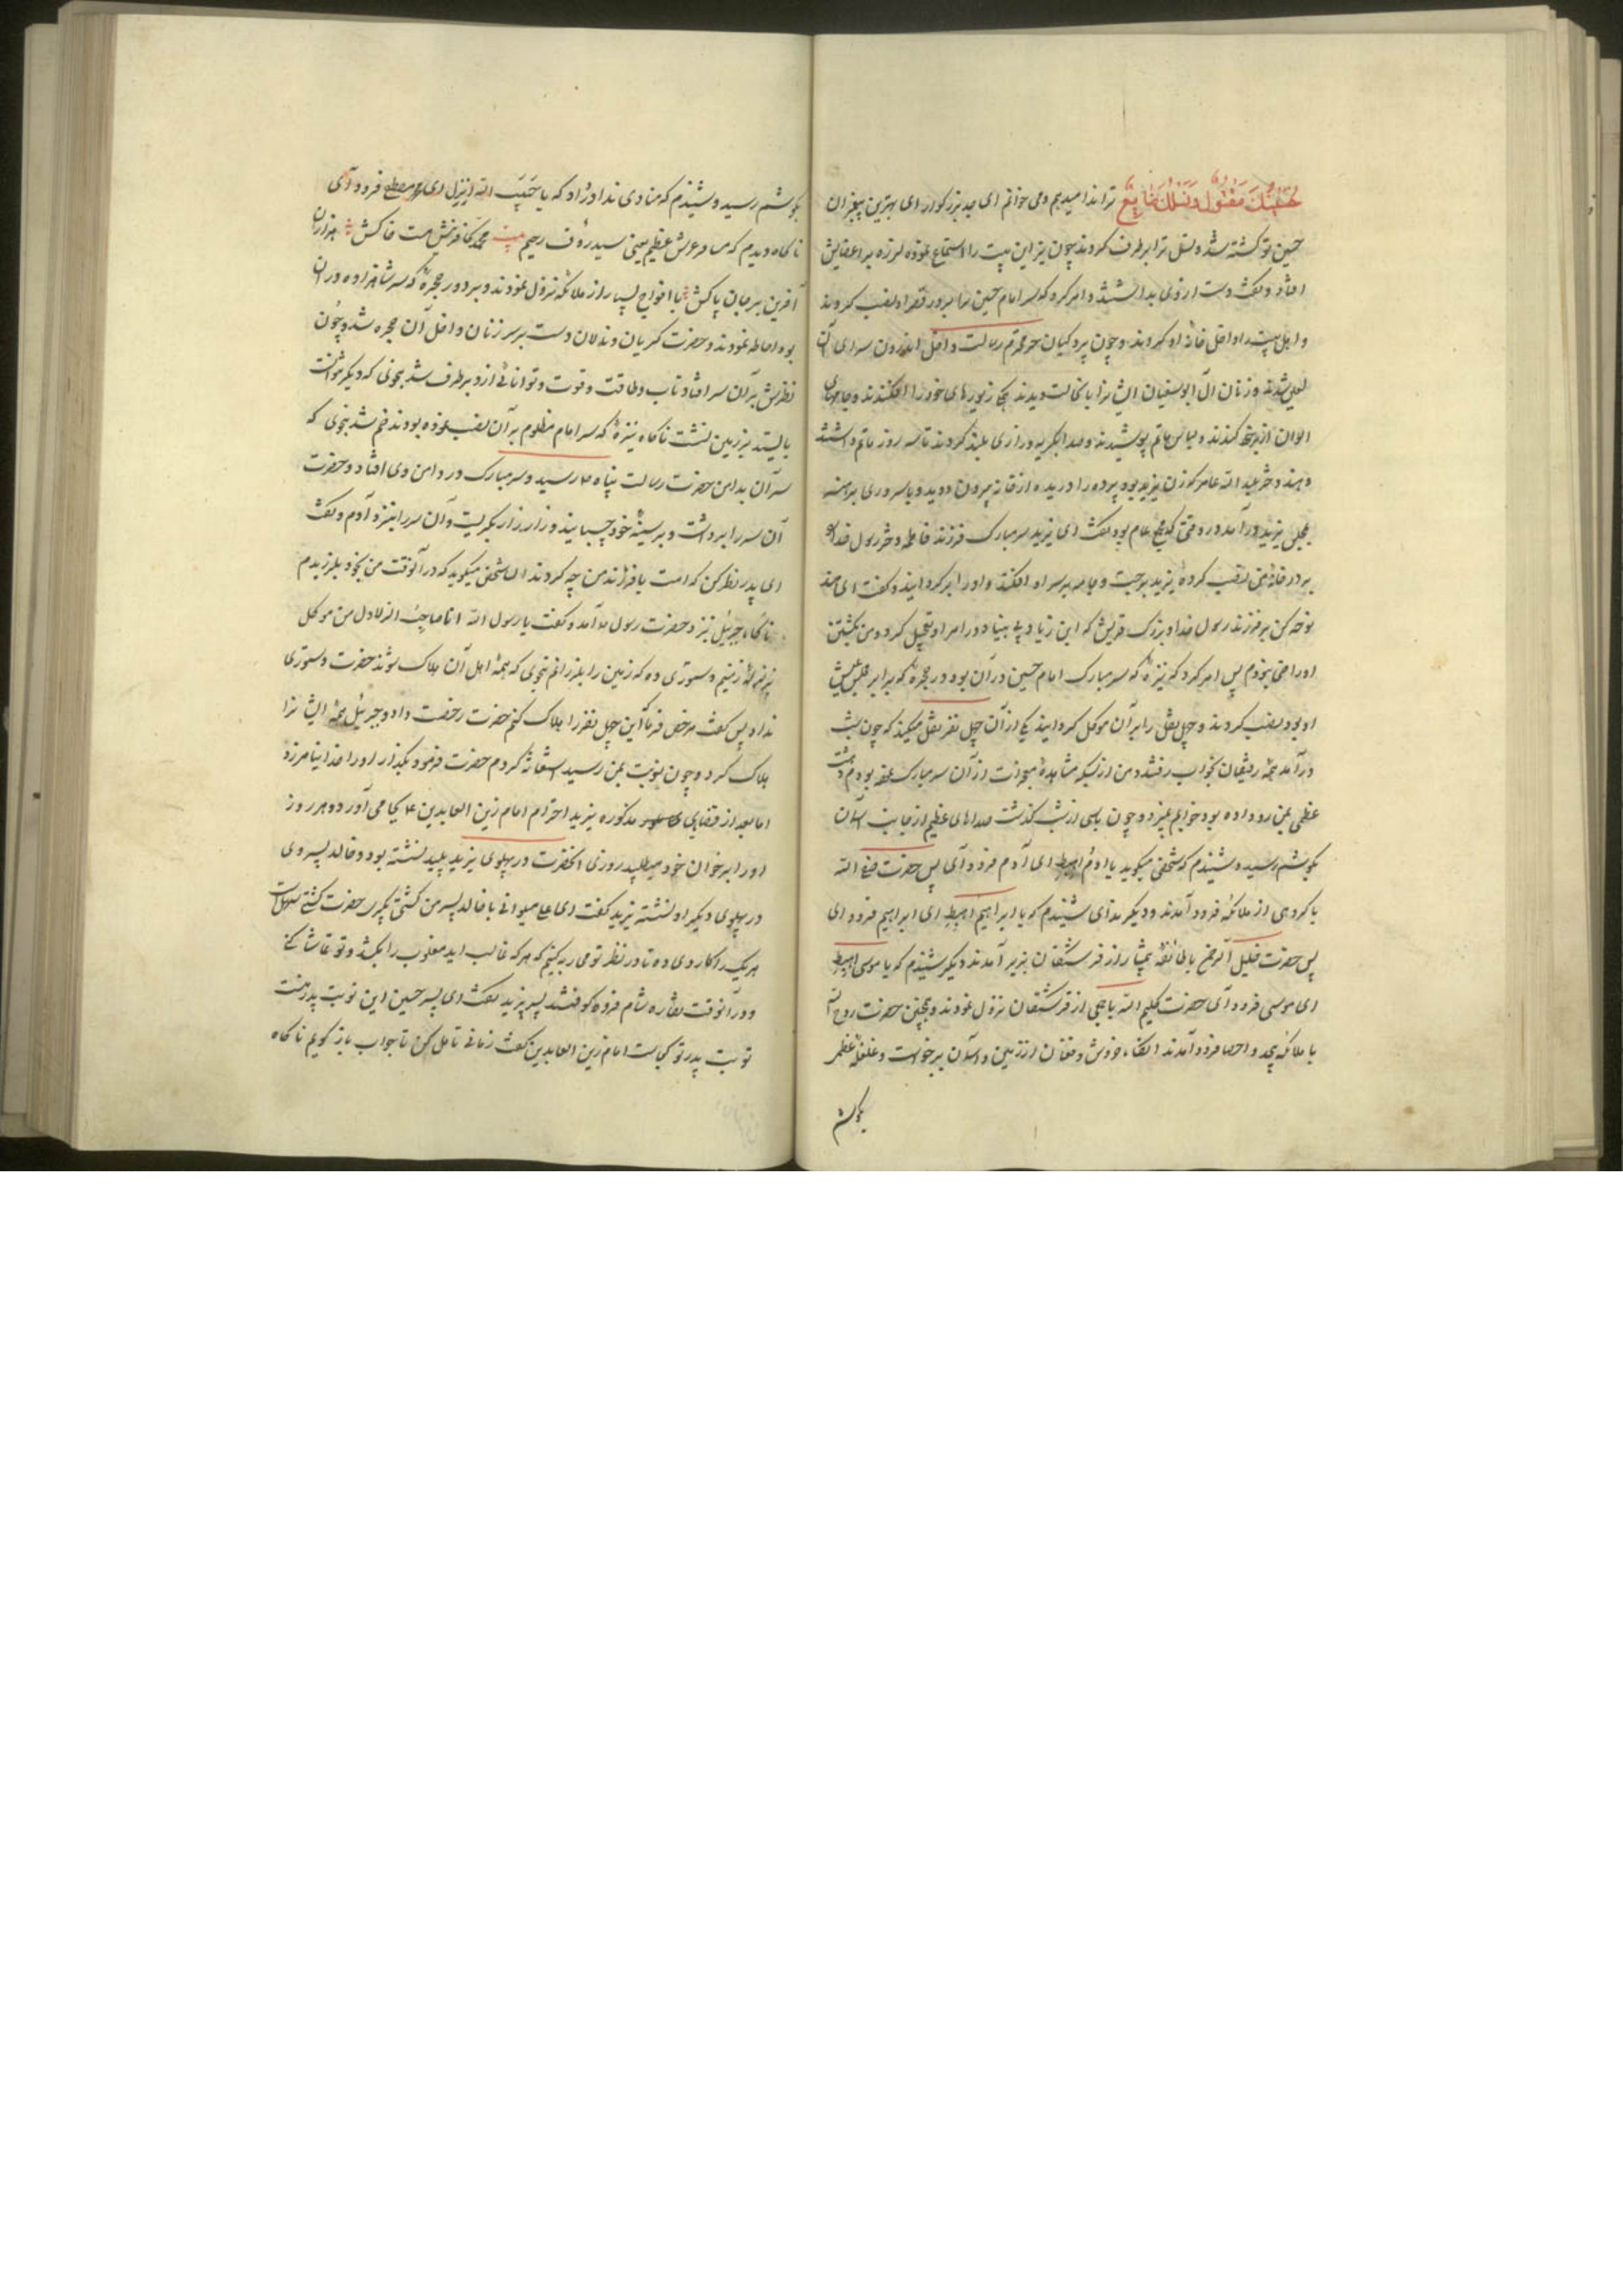 حُسَیْنُكَ مَقْتُولٌ وَنَسْلُكَ ضَایِعٌ ترا ندا میدهم و می خوانم ای جد بزرگوار ای بهترین پیغمبران
حسین تو کشته شد و نسل ترا برطرف کردند چون یزید این بیت را استماع نموده لرزه بر اعضایش
افتاد و گفت دست از وی بداشتند و امر کرد که سر امام حسین را بر در قصر او نصب کردند
و اهل بیت را داخل خانه او کردند و چون پردگیان حرم محترم رسالت داخل اندرون سرای آن
لعین شدند زنان آل ابوسفیان ایشانرا بانحالت دیدند زیورهای خود را افکندند و جامهای
الوان از بر کندند و لباس ماتم پوشیدند و صدا بگریه و زاری بلند کردند تا سه روز ماتم داشتند
و هند دختر عبد الله عامر که زن یزید بود پرده را دریده از خانه بیرون دوید و با سر و روی برهنه
بمجلس یزید درآمد در وقتی که مجمع عام بود گفت ای یزید سر مبارک فرزند فاطمه دختر رسول خدا را
بر در خانه من نصب کرده یزید برجست و جامه بر سر او افکند و او را برگردانید و گفت ای هند
نوحه کن بر فرزند رسول خدا و بزرگ قریش که ابن زیاد در امر او تعجیل کرد و من بکشتن
او راضی نبودم پس امر کرد که نیزه که سر مبارک امام حسین در آن بود در حجره که برابر مجلس عیش
او بود نصب کردند و چهل نفر را بر آن موکل گردانید یکی از آن چهل نفر نقل میکند که چون شب
درآمد همه رفیقان بخواب رفتند و من از بسکه مشاهده معجزات از آن سر مبارک نموده بودم دهشت
عظمی بمن رو داده بود خوابم نمیبرد و چون پاسی از شب گذشت صداهای عظیم از جانب آسمان
بگوشم رسید و شنیدم که شخصی میگوید یا آدم اهبط ای آدم فرود آی پس حضرت صفی الله
با گروهی از ملائکه فرود آمدند و دیگر ندای شنیدم که یا ابراهیم اهبط ای ابراهیم فرود ای
پس حضرت خلیل الرحمن با طائفه بیشمار از فرشتگان بزیر آمدند دیگر شنیدم که یا موسی اهبط
ای موسی فرود آی حضرت کلیم الله با جمعی از فرشتگان نزول نمودند و همچنین حضرت روح الله
با ملائکه بیحد و احصا فرود آمدند انگاه خروش و فغان از زمین و آسمان برخواست و غلغله عظیم
بگوشم
بگوشم رسید و شنیدم که منادی ندا درداد که یا حَبیبَ الله اِنزِل ای محمد مصطفی فرود آی
ناگاه دیدم که عرش عظیم یعنی سید رؤف رحیم بیت محمد کافرینش هست خاکش هزاران
آفرین بر جان پاکش با افواج بسیار از ملائکه نزول نمودند و بر دور حجره که سر شاهزاده در ان
بود احاطه نمودند و حضرت گریان و نالان دست بر سر زنان داخل آن حجره شد و چون
نظرش بر آن سر افتاد تاب و طاقت و قوت و توانائی از و برطرف شد بنحوی که دیگر نتوانست
بایستد بر زمین نشست ناگاه نیزه که سر امام مظلوم بر آن نصب نموده بودند خم شد بنحوی که
سر آن بدامن حضرت رسالت پناه رسید و سر مبارک در دامن وی افتاد و حضرت
آن سر را برداشت و بر سینه خود چسبانید و زار زار بگریست و آن سر را بنزد آدم و گفت
ای پدر نظر کن که امت با فرزند من چه کردند ان شخص میگوید که در آنوقت من بخود بلرزیدم
ناگاه جبرئیل بنزد حضرت رسول آمد و گفت یا رسول الله انا صاحب الزلازل من موکل
بر زلزله زمینم دستوری ده که زمین را بلرزانم بنحوی که همه اهل آن هلاک شوند حضرت دستوری
نداد پس گفت مرخص فرما این چهل نفر را هلاک کنم حضرت رخصت داد و جبرئیل همه ایشانرا
هلاک کرد و چون نوبت بمن رسید استغاثه کردم حضرت فرمود بگذار او را خدا نیامرزد
اما بعد از قضایای مذکوره یزید احترام امام زین العابدین بجا می آورد و هر روز
او را بر خوان خود میطلبید روزی انحضرت در پهلوی یزید پلید نشسته بود و خالد پسر وی
در پهلوی دیگر او نشسته یزید گفت ای علی میتوانی با خالد پسر من کشتی بگیری حضرت گفت کشتی سهل است
هر یک را کاردی ده تا در نظر تو محاربه کنیم که هر که غالب اید مغلوب را بکشد و تو تماشا کنی
و در آنوقت نقاره شام فرو کوفتند پسر یزید گفت ای پسر حسین این نوبت پدر منست
نوبت پدر تو کجاست امام زین العابدین گفت زمانی تامل کن تا جواب باز گویم ناگاه